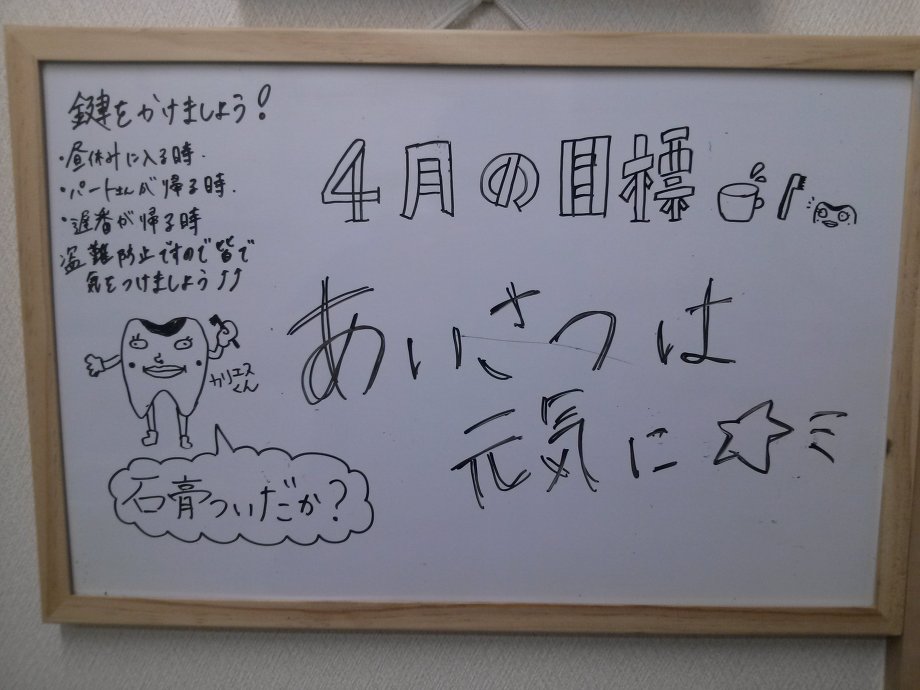 鍵をかけましょう!
・昼休みに入る時.
・パートさんが帰る時.
・遅番が帰る時
盗難防止ですので皆で
気をつけましょう!!
カリエス
くん
石膏ついだか?
4月の目標
あいさつは
元気に☆ミ